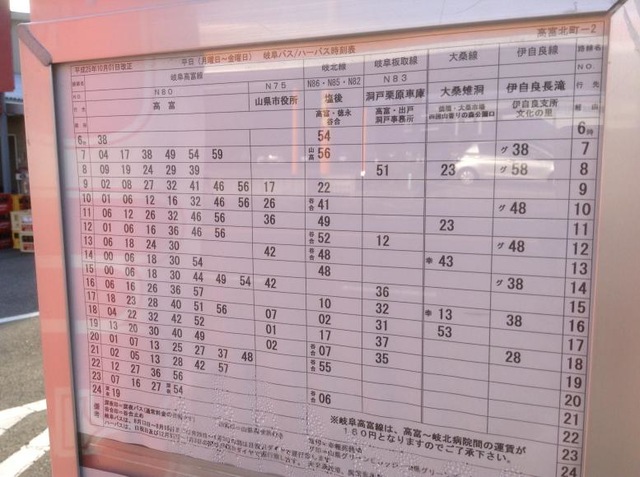 高富北町ー2
平成25年10月01日改正 平日(月曜日~金曜日) 岐阜バス/ハーバス時刻表
岐阜高富線 岐北線 岐阜板取線 大桑線 伊自良線 路線名
N80 N75 N86・N85・N82 N83 NO
高富 山県市役所 塩後 洞戸栗原車庫 大桑雉洞 伊自良長滝 行先
高富・徳永 谷合 高富・出戸 洞戸事務所 伊自良支所 文化の里
6時 38 54 6時
7 04 17 38 49 54 59 山高56 グ38 7
8 09 19 24 29 39 51 23 グ58 8
9 02 08 27 32 41 46 56 17 22 9
10 01 06 12 16 32 46 56 26 谷合41 グ48 10
11 06 12 26 32 46 56 36 49 23 11
12 01 06 16 36 46 56 谷合52 12 グ48 12
13 06 18 24 30 42 谷合48 幸43 13
14 00 06 18 30 54 48 グ38 14
15 00 06 18 30 44 49 54 42 36 15
16 06 16 26 36 57 10 32 幸13 38 16
17 18 23 28 40 51 56 07 02 31 53 17
18 04 22 32 42 52 01 17 37 28 18
19 13 20 30 40 49 02 谷合07 35 19
20 01 07 13 25 27 37 48 谷合55 20
21 02 05 13 28 42 57 21
22 12 22 36 56 谷合06 22
23 07 16 27 54 23
24 19 24
備考
※岐阜高富線は、高富~岐北病院間の運賃が
160円となりますのでご了承下さい。